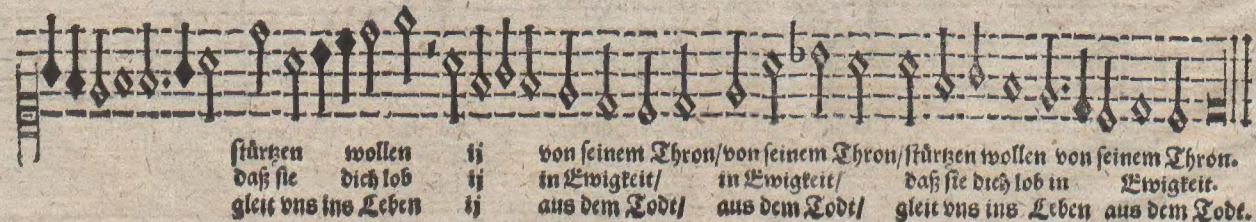 stürtzen wollen ij von seinem Thron/von seinem Thron/stürtzen wollen von seinem Thron.
daß sie dich lob ij in Ewigkeit/ in Ewigkeit/ daß sie dich lob in Ewigkeit.
gleit vns ins Leben ij aus dem Todt/ aus dem Todt/ gleit vns ins Leben aus dem Todt